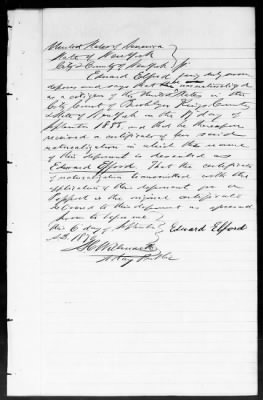 United States of America
State of New York
City & County of New York ss
Edward Elford being duly sworn
deposes and says that he was naturalized
as a citizen of the United States in the
City Court of Brooklyn Kings County
State of New York on the 17 day of
September 1855, and that he thereupon
received a certificate of his said
naturalization in which the name
of this deponent is described as
Edward Elford. That the certificate
of naturalization transmitted with the
application of this deponent for a
Passport is the original certificate
delivered to this deponent as aforesaid
Sworn to before me
this 6 day of September Edward Elford
A.D. 187
Notary Public